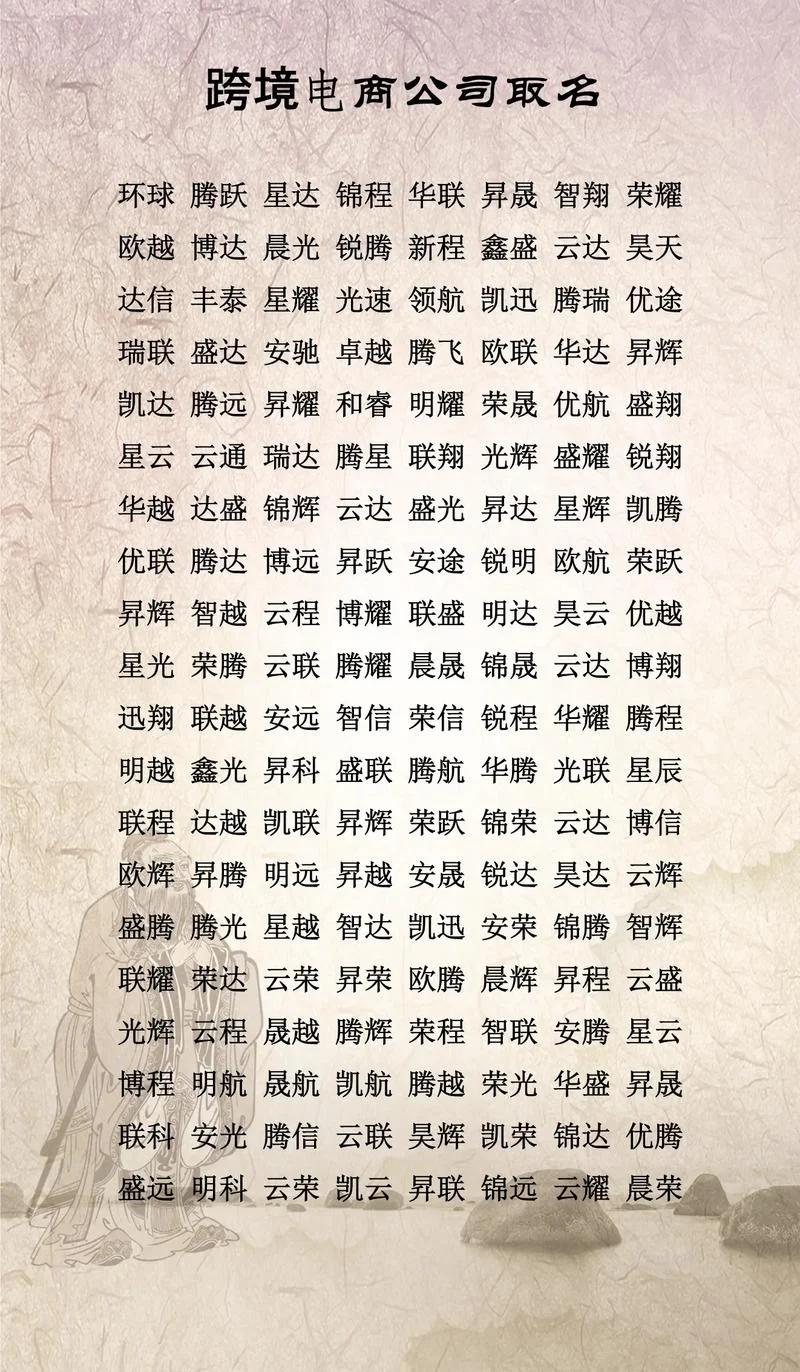 跨境电商公司取名
环球 腾跃 星达 锦程 华联 昇晟 智翔 荣耀
欧越 博达 晨光 锐腾 新程 鑫盛 云达 昊天
达信 丰泰 星耀 光速 领航 凯迅 腾瑞 优途
瑞联 盛达 安驰 卓越 腾飞 欧联 华达 昇辉
凯达 腾远 昇耀 和睿 明耀 荣晟 优航 盛翔
星云 云通 瑞达 腾星 联翔 光辉 盛耀 锐翔
华越 达盛 锦辉 云达 盛光 昇达 星辉 凯腾
优联 腾达 博远 昇跃 安途 锐明 欧航 荣跃
昇辉 智越 云程 博耀 联盛 明达 昊云 优越
星光 荣腾 云联 腾耀 晨晟 锦晟 云达 博翔
迅翔 联越 安远 智信 荣信 锐程 华耀 腾程
明越 鑫光 昇科 盛联 腾航 华腾 光联 星辰
联程 达越 凯联 昇辉 荣跃 锦荣 云达 博信
欧辉 昇腾 明远 昇越 安晟 锐达 昊达 云辉
盛腾 腾光 星越 智达 凯迅 安荣 锦腾 智辉
联耀 荣达 云荣 昇荣 欧腾 晨辉 昇程 云盛
光辉 云程 晟越 腾辉 荣程 智联 安腾 星云
博程 明航 晟航 凯航 腾越 荣光 华盛 昇晟
联科 安光 腾信 云联 昊辉 凯荣 锦达 优腾
盛远 明科 云荣 凯云 昇联 锦远 云耀 晨荣